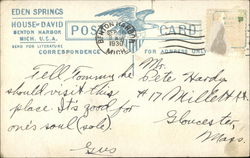 EDEN SPRINGS
HOUSE OF DAVID
BENTON HARBOR
MICH. U.S.A.
SEND FOR LITERATURE
POST CARD
CORRESPONDENCE
FOR ADDRESS ONLY
BENTON HARBOR
1930
MICH.
Tell Tommy he
should visit this
place. It's good for
one's soul (sole).
Gus
Mr.
Pete Hardy
#17 Millett
Gloucester,
Mass.